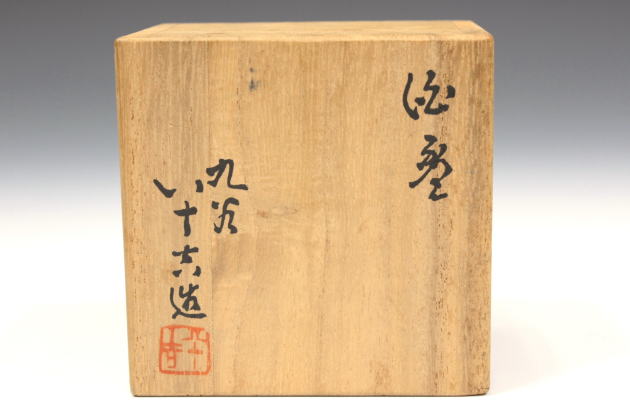 酒盃
九谷
八十吉造